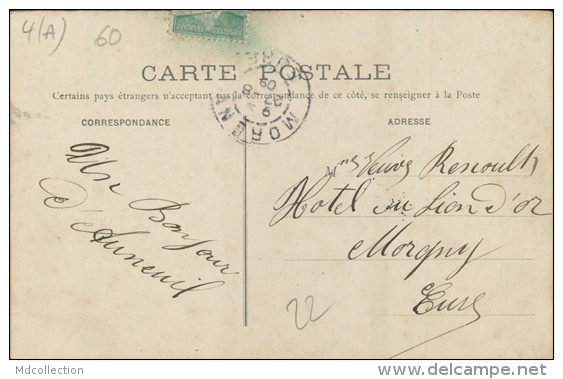 4(A)
60
CARTE POSTALE
Certains pays étrangers n'acceptant pas la correspondance de ce côté, se renseigner à la Poste
CORRESPONDANCE
ADRESSE
Un Bonjour
d'Auneuil
Veuve
Hotel du Lion d'or
Morgny
Eure
22
Mdcollection
www.delcampe.net